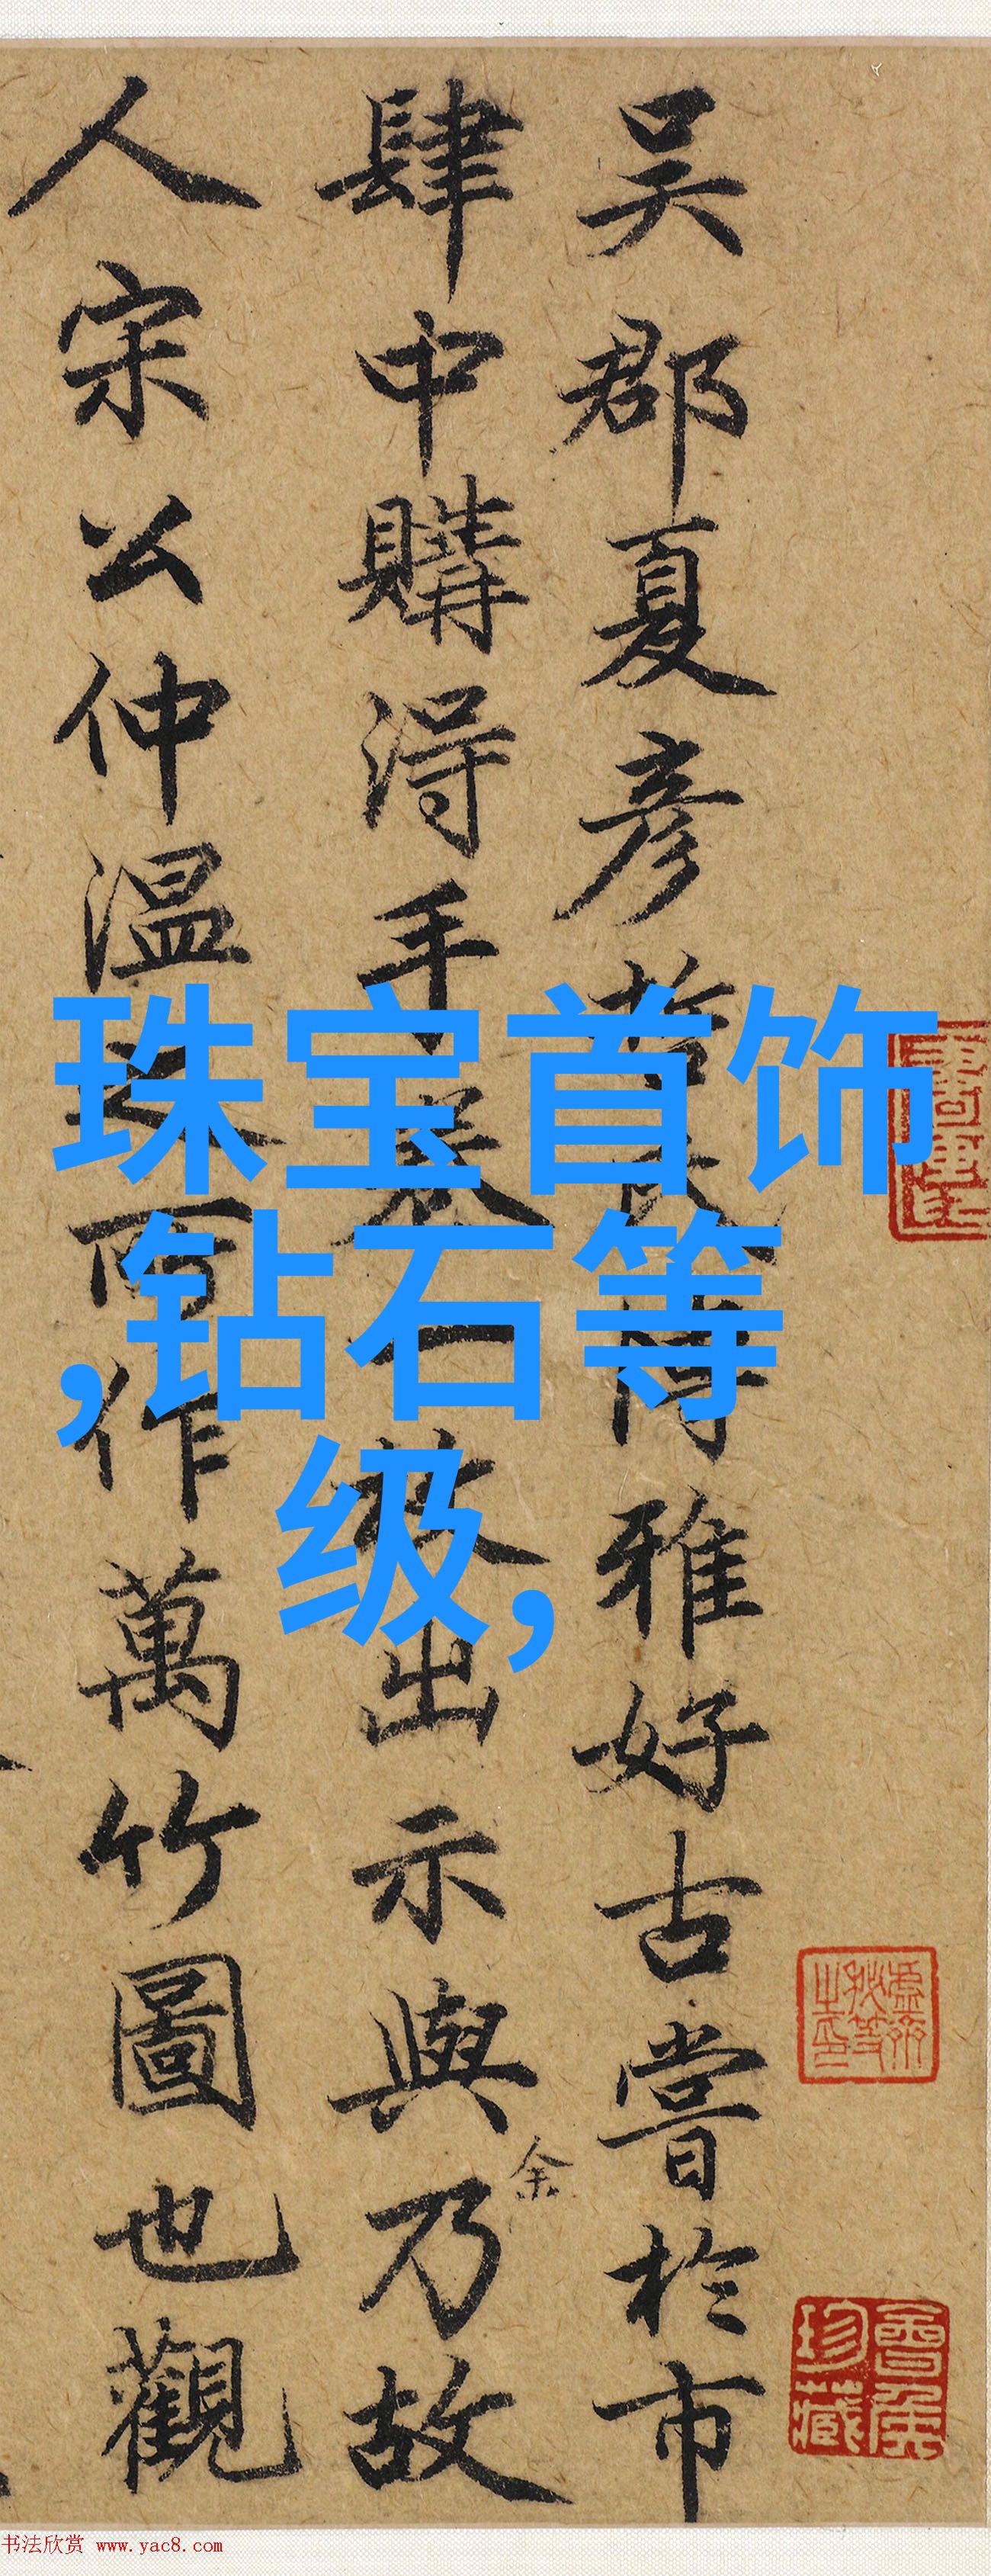 吴郡夏彦雅好古嘗於市
肆中購得手出示與乃故
余
人宋公仲温作萬竹圖也觀
珠宝首饰
,钻石等
级,
珍藏
书法欣赏 www.yac8.com